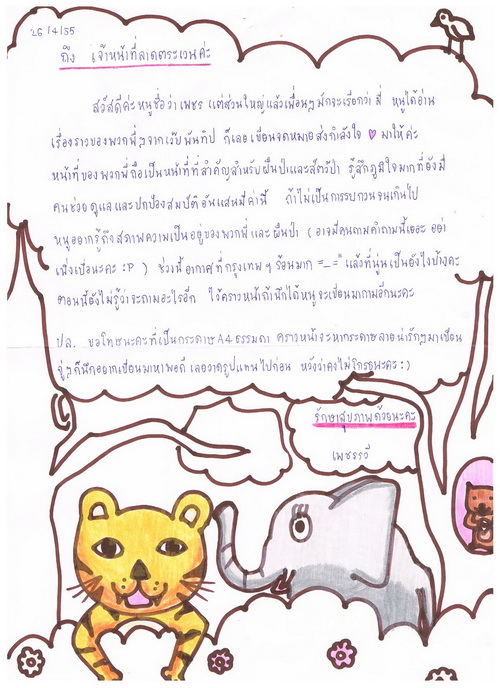 26/4/55
ถึง เจ้าหน้าที่ลาดตระเวนค่ะ
สวัสดีค่ะหนูชื่อว่าเพชร แต่ส่วนใหญ่แล้วเพื่อนๆมักจะเรียกว่า สี่ หนูได้อ่าน
เรื่องราวของพวกพี่ๆจากเว็บพันทิป ก็เลยเขียนจดหมายส่งกำลังใจ ♥ มาให้ค่ะ
หน้าที่ของพวกพี่ถือเป็นหน้าที่ที่สำคัญสำหรับผืนป่าและสัตว์ป่า รู้สึกภูมิใจมากที่ยังมี
คนช่วยดูแลและปกป้องสมบัติอันแสนมีค่านี้ ถ้าไม่เป็นการรบกวนจนเกินไป
หนูอยากรู้ถึงสภาพความเป็นอยู่ของพวกพี่และผืนป่า (อาจมีคนถามคำถามนี้เยอะ อย่า
เพิ่งเบื่อนะคะ :P ) ช่วงนี้อากาศที่กรุงเทพฯร้อนมาก =_=" แล้วที่นู่นเป็นยังไงบ้างคะ
ตอนนี้ยังไม่รู้ว่าจะถามอะไรอีก ไว้คราวหน้าถ้านึกได้หนูจะเขียนมาถามอีกนะคะ
ปล. ขอโทษนะคะที่เป็นกระดาษA4ธรรมดา คราวหน้าจะหากระดาษลายน่ารักๆมาเขียน
จู่ๆก็นึกอยากเขียนมาหาพอดี เลยวาดรูปแทนไปก่อน หวังว่าคงไม่โกรธนะคะ:)
รักษาสุขภาพด้วยนะคะ
เพชรรวี